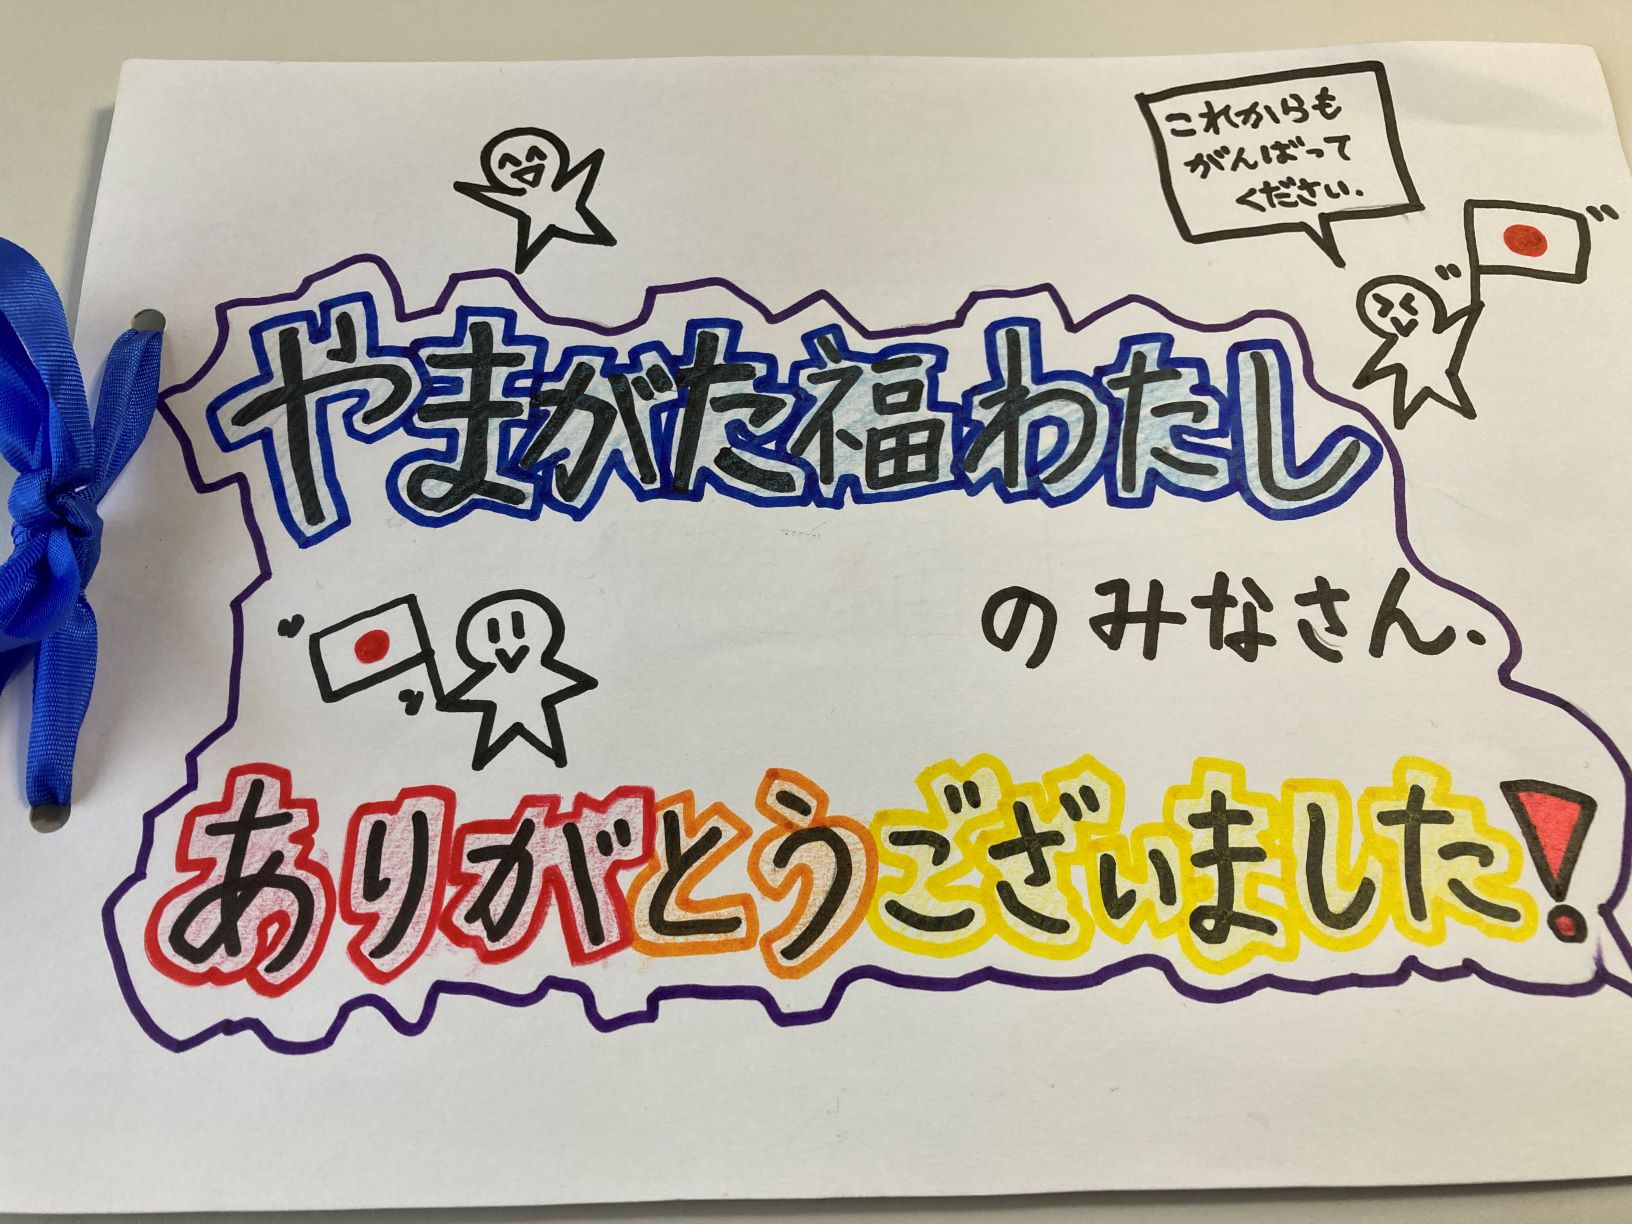 これからも
がんばって
ください.
やまがた福わたし
のみなさん.
ありがとうございました!